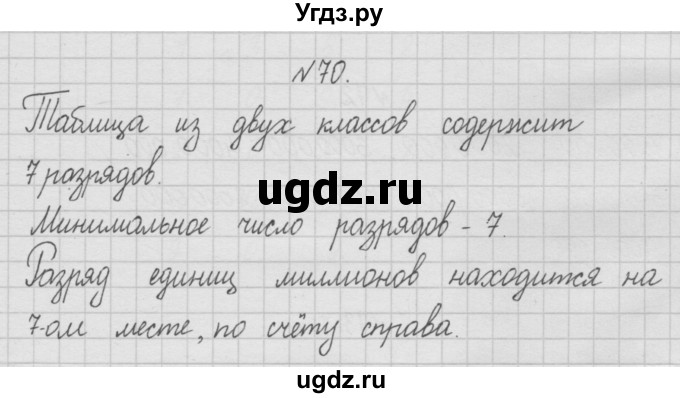 Угдз.ру
№70.
Таблица из двух классов содержит
7 разрядов.
ugdz.ru
Минимальное число разрядов - 7.
Разряд единиц миллионов находится на
7-ом месте, по счёту справа.
ugdz.ru